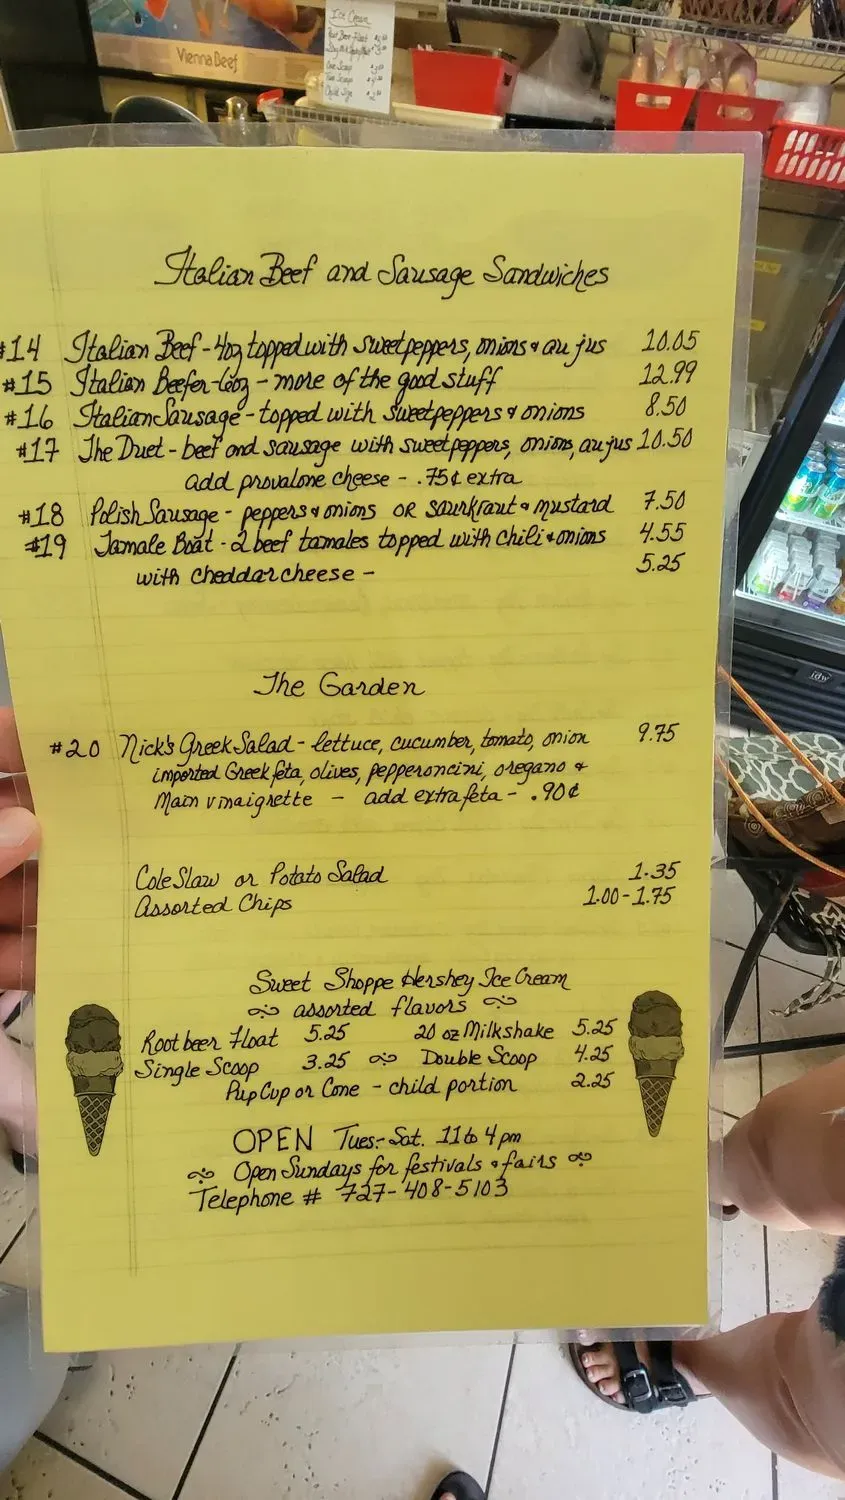 Vienna Beef
Ice Cream
Italian Beef and Sausage Sandwiches
#14 Italian Beef - 4oz topped with sweet peppers, onions & au jus 10.05
#15 Italian Beefer - 6oz - more of the good stuff 12.99
#16 Italian Sausage - topped with sweet peppers & onions 8.50
#17 The Duet - beef and sausage with sweet peppers, onions, au jus 10.50
add provalone cheese - .75¢ extra
#18 Polish Sausage - peppers & onions OR saurkraut & mustard 7.50
#19 Tamale Boat - 2 beef tamales topped with chili & onions 4.55
with cheddar cheese - 5.25
The Garden
#20 Nick's Greek Salad - lettuce, cucumber, tomato, onion 9.75
imported Greek feta, olives, pepperoncini, oregano &
Main vinaigrette - add extra feta - .90¢
Cole Slaw or Potato Salad 1.35
Assorted Chips 1.00-1.75
Sweet Shoppe Hershey Ice Cream
assorted flavors
Root beer Float 5.25 20 oz Milkshake 5.25
Single Scoop 3.25 Double Scoop 4.25
Pup Cup or Cone - child portion 2.25
OPEN Tues.- Sat. 11 to 4 pm
Open Sundays for festivals & fairs
Telephone # 727-408-5103
idw